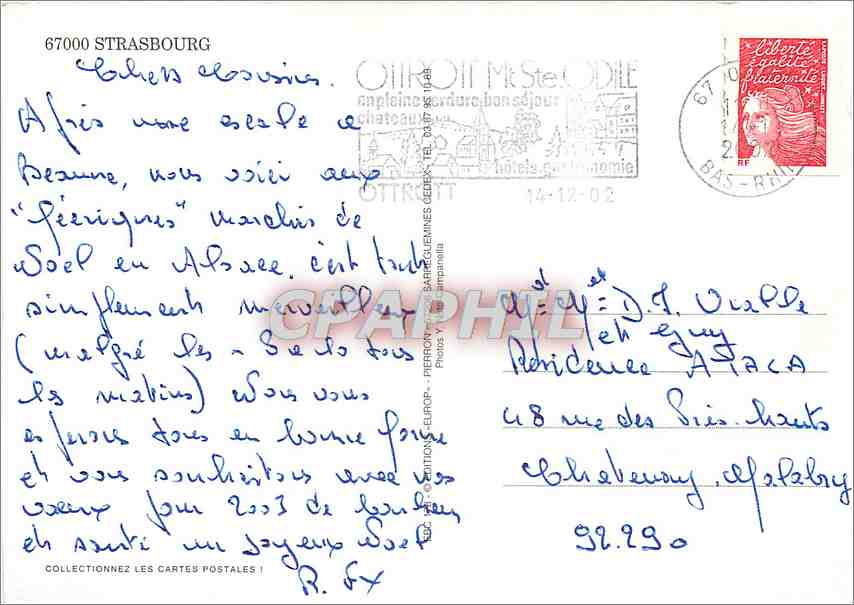 67000 STRASBOURG
Chers Cousins.
Après notre escale a
Beaune, nous voici aux
"féeriques" marchés de
Noel en Alsace. c'est tout
simplement merveilleux
(malgré les - 3 a 10 tous
les matins) Nous vous
espérons tous en bonne forme
et vous souhaitons avec nos
voeux pour 2003 de bonheur
et santé un Joyeux Noel
COLLECTIONNEZ LES CARTES POSTALES !
OTTROTT Mt Ste. ODILE
en pleine verdure bon séjour
chateaux
hôtels gastronomie
OTTROTT
14-12-02
67
BAS-RHIN
liberté
égalité
fraternité
RF
© EDITIONS «EUROP» - PIERRON - SARREGUEMINES CEDEX - TEL. 03 87 95 10 89
Photos Y. Noto Campanella
CPAPHIL
Mr et Mme D.J. Vialle
et Guy
Résidence ATACA
48 rue des Prés-hauts
Chatenay. Malabry
92.290